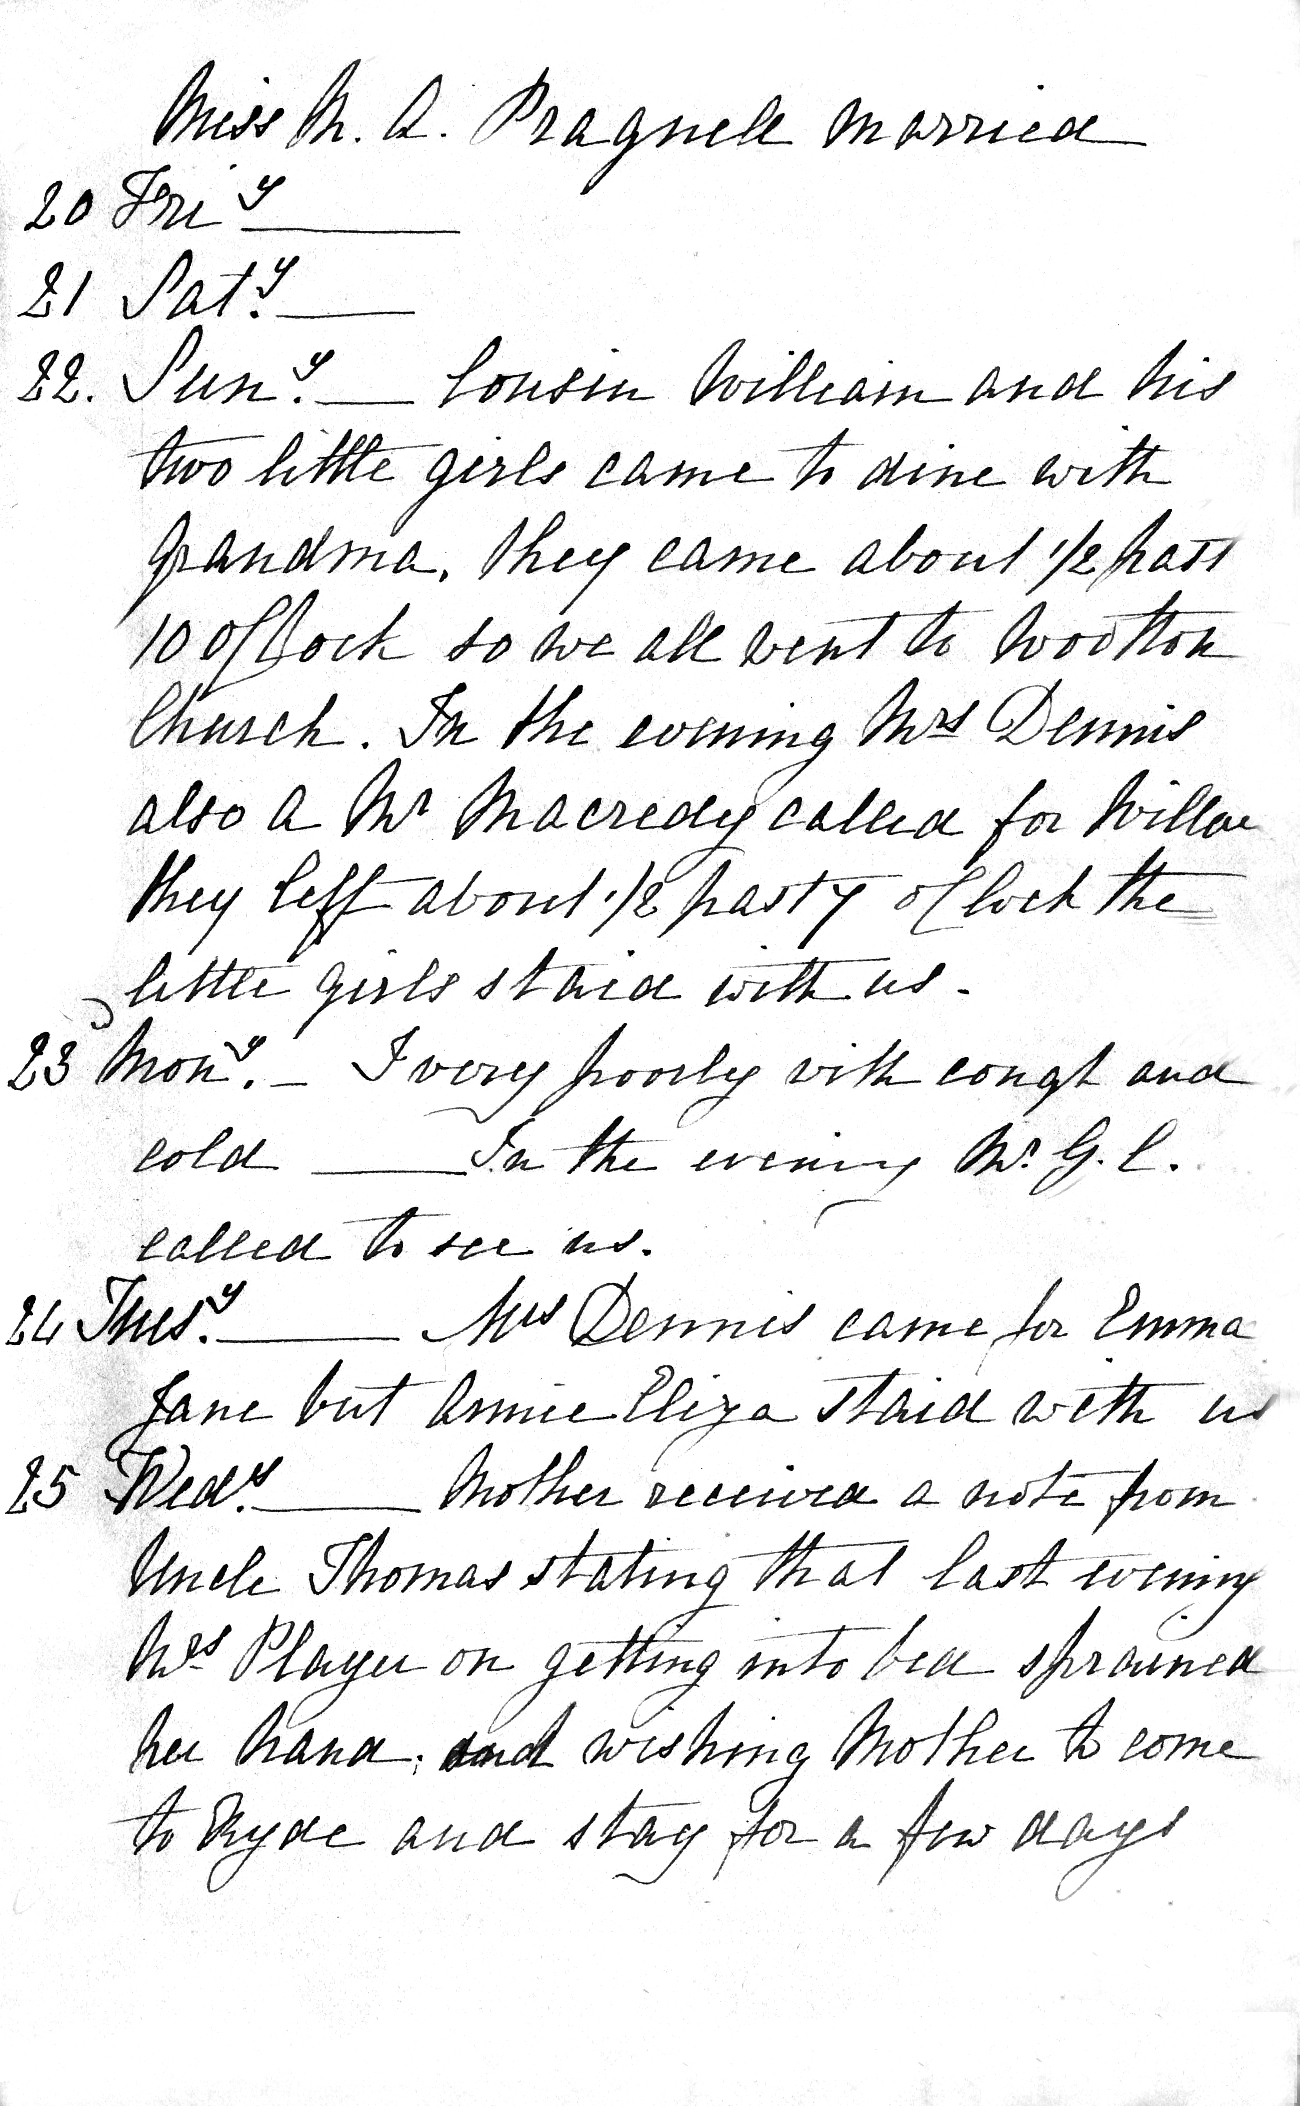 Miss M. A. Pragnell married
20 Friy
21 Sat.y
22. Sun.y Cousin William and his
two little girls came to dine with
Grandma, they came about 1/2 past
10 o'Clock so we all went to Wootton
Church. In the evening Mrs Dennis
also a Mr Macredy called for Willm
they left about 1/2 past 7 o'Clock the
little girls staid with us.
23 Mon.y I very poorly with cough and
cold In the evening Mr. G. C.
called to see us.
24 Tues.y Mrs Dennis came for Emma
Jane but Annie Eliza staid with us
25 Wed.y Mother received a note from
Uncle Thomas stating that last evening
Mrs Player on getting into bed sprained
her hand, and wishing Mother to come
to Ryde and stay for a few days